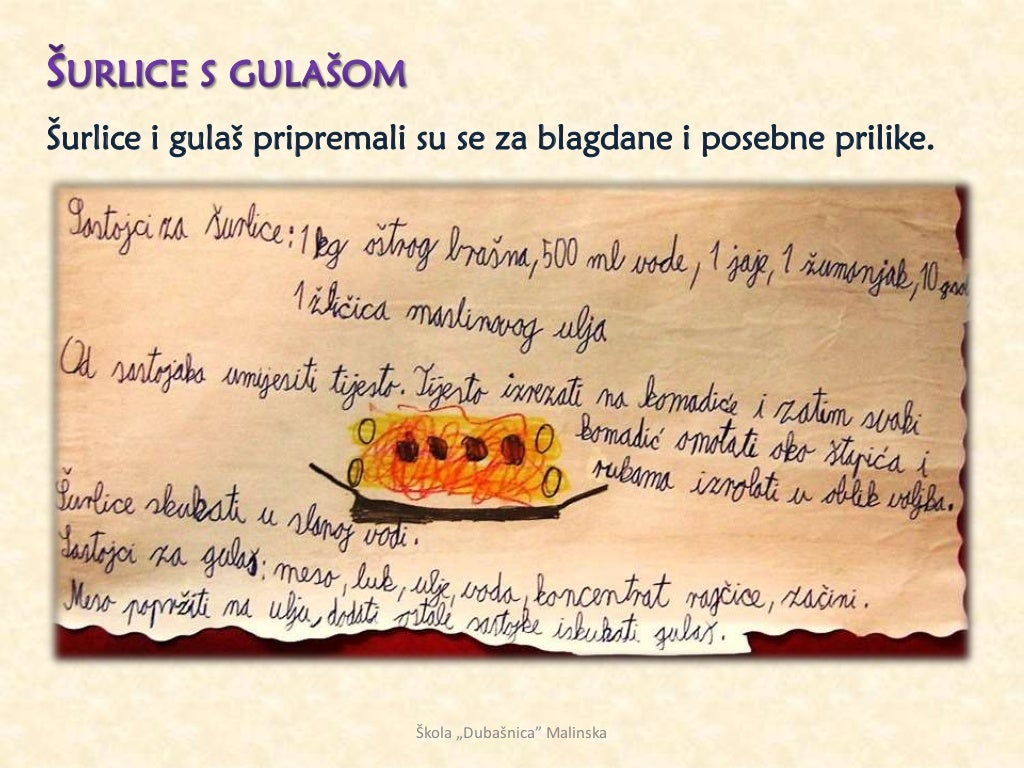 ŠURLICE S GULAŠOM
Šurlice i gulaš pripremali su se za blagdane i posebne prilike.
Sastojci za šurlice: 1 kg oštrog brašna, 500 ml vode, 1 jaje, 1 žumanjak, 10 g soli
1 žličica maslinovog ulja
Od sastojaka umijesiti tijesto. Tijesto izrezati na komadiće i zatim svaki
komadić omotati oko štapića i
rukama izrolati u oblik valjka.
Šurlice skuhati u slanoj vodi.
Sastojci za gulaš: meso, luk, ulje, voda, koncentrat rajčice, začini.
Meso popržiti na ulju, dodati ostale sastojke i skuhati gulaš.
Škola „Dubašnica” Malinska